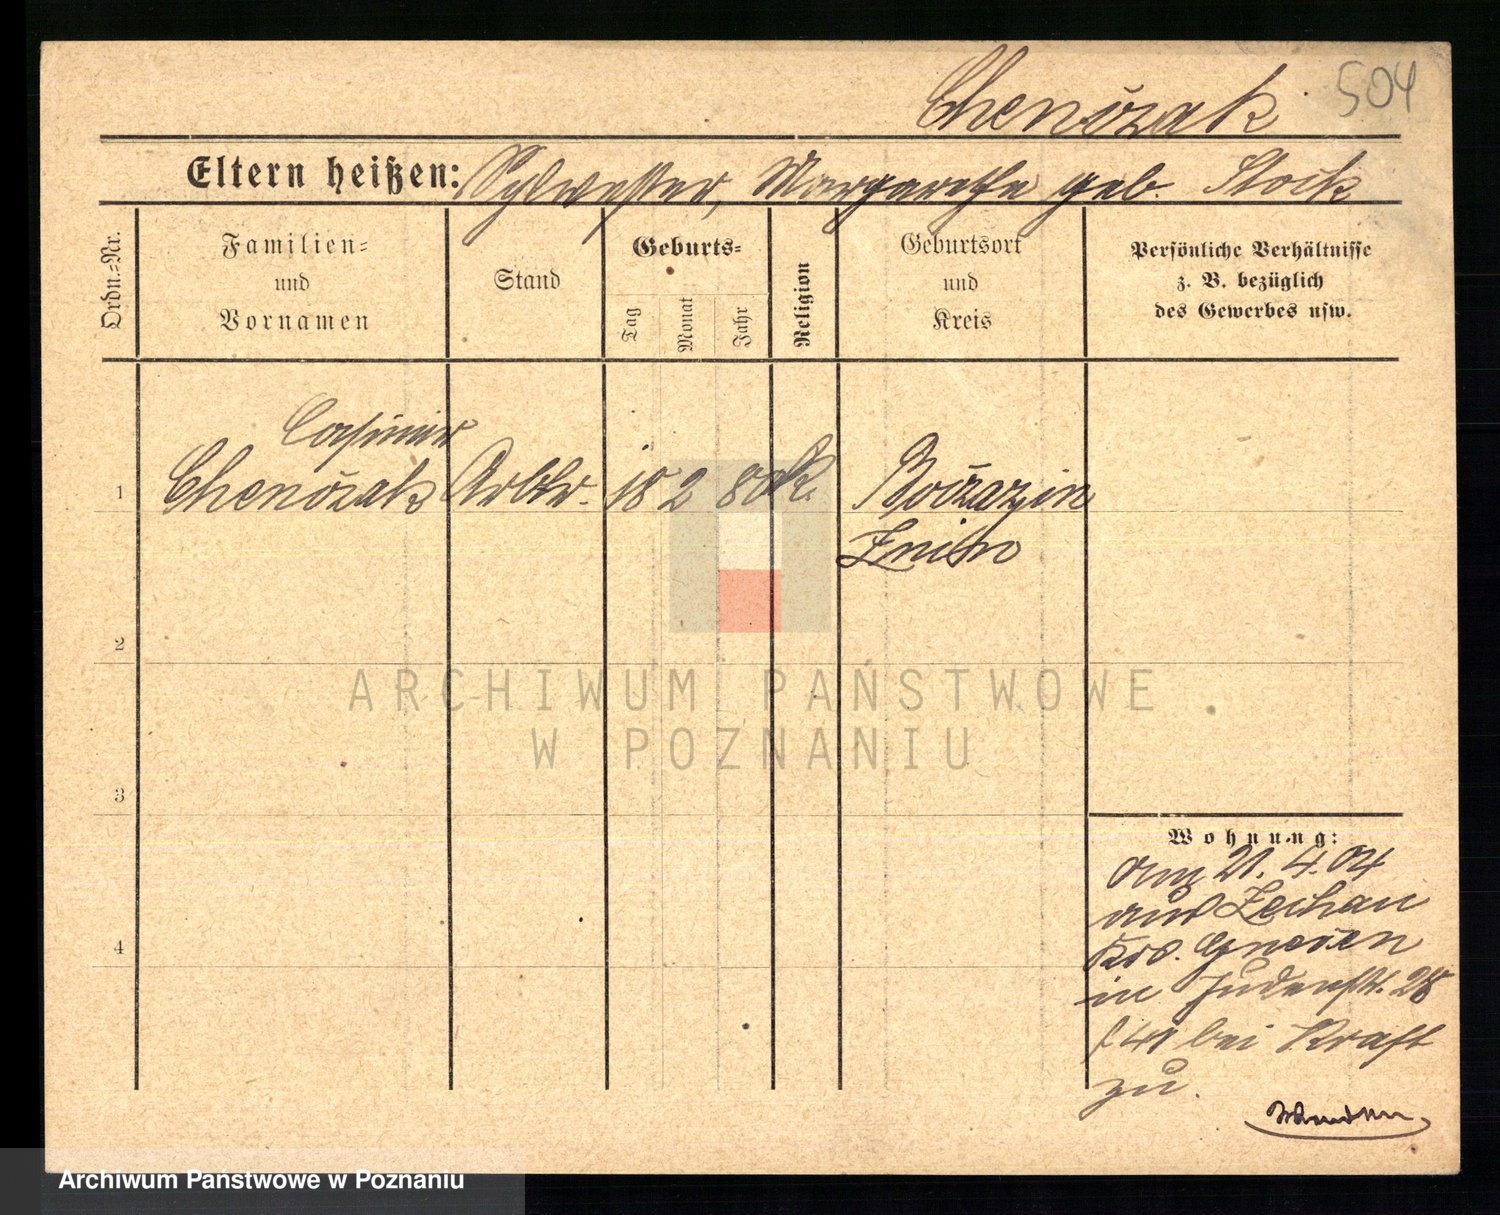 504
Chenózak
Eltern heißen: Sylwester, Margarethe geb. Stock
Ordn.=Nr.
Familien=
und
Vornamen
Stand
Geburts=
Tag
Monat
Jahr
Religion
Geburtsort
und
Kreis
Persönliche Verhältnisse
z. B. bezüglich
des Gewerbes usw.
Casimir
1 Chenózak Arbtr. 18 2 80 k.
Znin
2
3
4
ARCHIWUM PAŃSTWOWE
W POZNANIU
Wohnung:
am 21. 4. 04
aus Zechau
Krs. Gnesen
in Judenstr. 28
bei Kraft
zu.
Archiwum Państwowe w Poznaniu